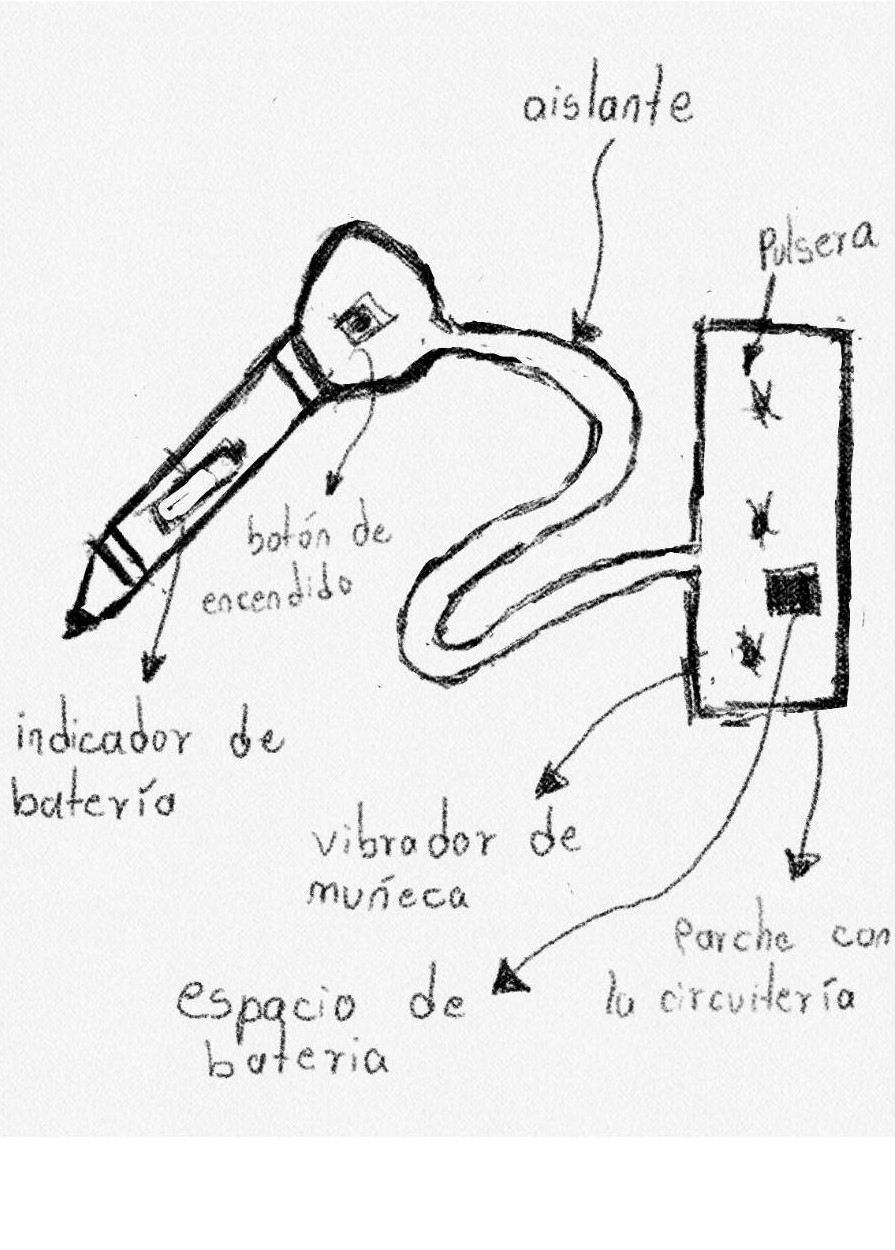 aislante
Pulsera
botón de
encendido
indicador de
batería
vibrador de
muñeca
parche con
la circuitería
espacio de
bateria